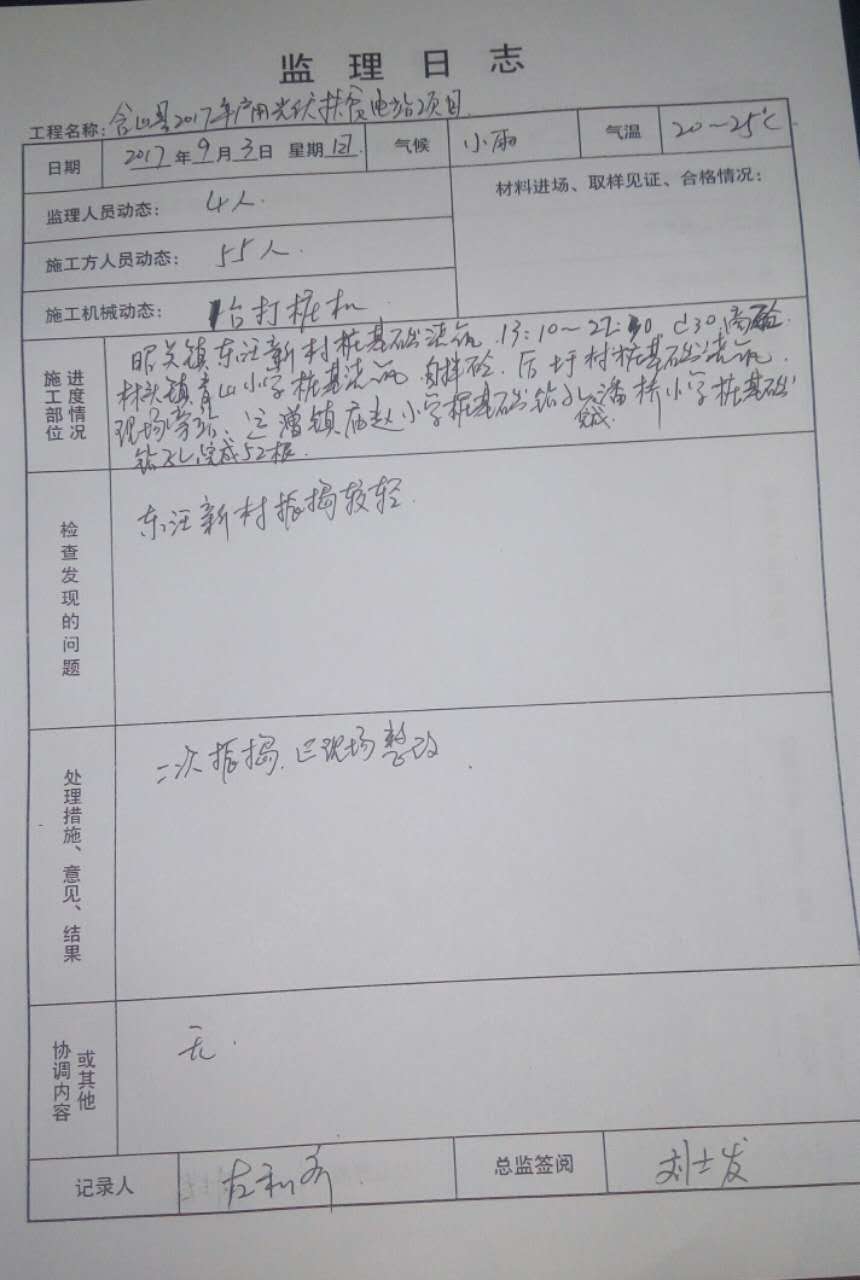 监理日志
工程名称：含山县2017年户用光伏扶贫电站项目
日期 2017年9月3日 星期日 气候 小雨 气温 20～25℃
监理人员动态： 4人. 材料进场、取样见证、合格情况：
施工方人员动态： 55人.
施工机械动态： 台打桩机
施工部位进度情况
昭关镇东汪新村桩基础浇筑.13:10～22:30 C30商砼.
林头镇青山小学桩基浇筑,自拌砼.后圩村桩基础浇筑.
现场旁站.运漕镇庙赵小学桩基础钻孔完成.潘桥小学桩基础
钻孔完成52根.
检查发现的问题
东汪新村振捣较轻.
处理措施、意见、结果
二次振捣.已现场整改.
或其他协调内容
无.
记录人 左和 总监签阅 刘士发